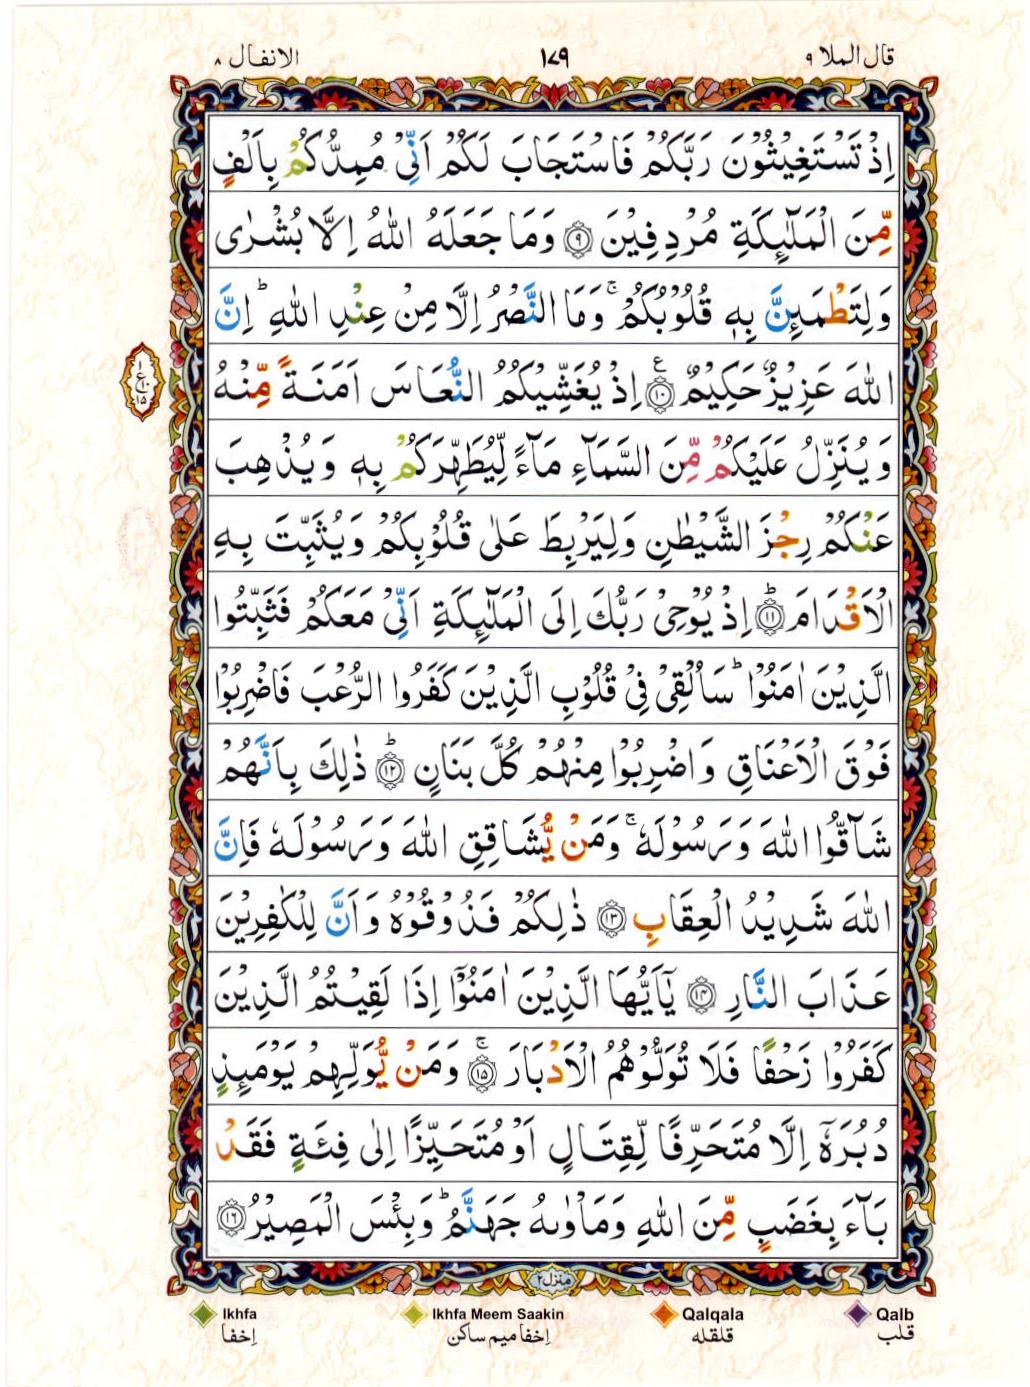 قال الملا ٩
١٧٩
الانفال ٨
اِذْ تَسْتَغِيْثُوْنَ رَبَّكُمْ فَاسْتَجَابَ لَكُمْ اَنِّىْ مُمِدُّكُمْ بِاَلْفٍ
مِّنَ الْمَلٰٓئِكَةِ مُرْدِفِيْنَ ۝٩ وَمَا جَعَلَهُ اللّٰهُ اِلَّا بُشْرٰى
وَلِتَطْمَئِنَّ بِهٖ قُلُوْبُكُمْ ۚ وَمَا النَّصْرُ اِلَّا مِنْ عِنْدِ اللّٰهِ ؕ اِنَّ
اللّٰهَ عَزِيْزٌ حَكِيْمٌ ۝١٠ ع اِذْ يُغَشِّيْكُمُ النُّعَاسَ اَمَنَةً مِّنْهُ
وَيُنَزِّلُ عَلَيْكُمْ مِّنَ السَّمَآءِ مَآءً لِّيُطَهِّرَكُمْ بِهٖ وَيُذْهِبَ
عَنْكُمْ رِجْزَ الشَّيْطٰنِ وَلِيَرْبِطَ عَلٰى قُلُوْبِكُمْ وَيُثَبِّتَ بِهِ
الْاَقْدَامَ ؕ۝١١ اِذْ يُوْحِىْ رَبُّكَ اِلَى الْمَلٰٓئِكَةِ اَنِّىْ مَعَكُمْ فَثَبِّتُوا
الَّذِيْنَ اٰمَنُوْا ؕ سَاُلْقِىْ فِىْ قُلُوْبِ الَّذِيْنَ كَفَرُوا الرُّعْبَ فَاضْرِبُوْا
فَوْقَ الْاَعْنَاقِ وَاضْرِبُوْا مِنْهُمْ كُلَّ بَنَانٍ ؕ۝١٢ ذٰلِكَ بِاَنَّهُمْ
شَآقُّوا اللّٰهَ وَرَسُوْلَهٗ ۚ وَمَنْ يُّشَاقِقِ اللّٰهَ وَرَسُوْلَهٗ فَاِنَّ
اللّٰهَ شَدِيْدُ الْعِقَابِ ۝١٣ ذٰلِكُمْ فَذُوْقُوْهُ وَاَنَّ لِلْكٰفِرِيْنَ
عَذَابَ النَّارِ ۝١٤ يٰٓاَيُّهَا الَّذِيْنَ اٰمَنُوْٓا اِذَا لَقِيْتُمُ الَّذِيْنَ
كَفَرُوْا زَحْفًا فَلَا تُوَلُّوْهُمُ الْاَدْبَارَ ۚ۝١٥ وَمَنْ يُّوَلِّهِمْ يَوْمَئِذٍ
دُبُرَهٗٓ اِلَّا مُتَحَرِّفًا لِّقِتَالٍ اَوْ مُتَحَيِّزًا اِلٰى فِئَةٍ فَقَدْ
بَآءَ بِغَضَبٍ مِّنَ اللّٰهِ وَمَاْوٰىهُ جَهَنَّمُ ؕ وَبِئْسَ الْمَصِيْرُ ۝١٦
١
ع ١٠
١٥
منزل ٢
Ikhfa
Ikhfa Meem Saakin
Qalqala
Qalb
اِخفا
اِخفا میم ساکن
قلقله
قلب